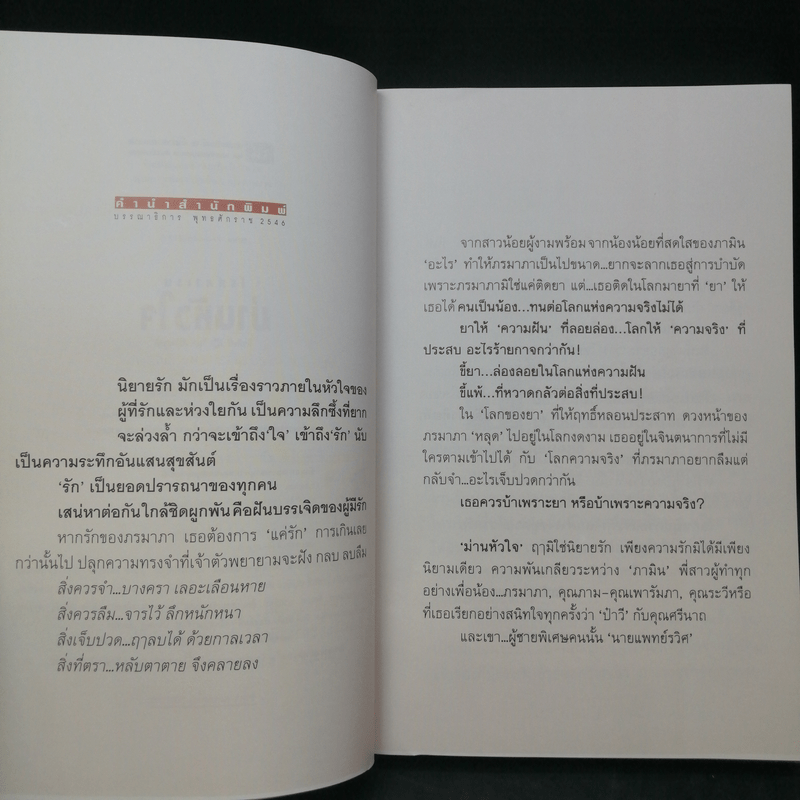 คำนำสำนักพิมพ์
บรรณาธิการ พุทธศักราช 2546
นิยายรัก มักเป็นเรื่องราวภายในหัวใจของ
ผู้ที่รักและห่วงใยกัน เป็นความลึกซึ้งที่ยาก
จะล่วงล้ำ กว่าจะเข้าถึง‘ใจ’ เข้าถึง‘รัก’ นับ
เป็นความระทึกอันแสนสุขสันต์
‘รัก’ เป็นยอดปรารถนาของทุกคน
เสน่หาต่อกันใกล้ชิดผูกพัน คือฝันบรรเจิดของผู้มีรัก
หากรักของภรมาภา เธอต้องการ ‘แค่รัก’ การเกินเลย
กว่านั้นไป ปลุกความทรงจำที่เจ้าตัวพยายามจะฝัง กลบ ลบลืม
สิ่งควรจำ...บางครา เลอะเลือนหาย
สิ่งควรลืม...จารไว้ ลึกหนักหนา
สิ่งเจ็บปวด...ฤๅลบได้ ด้วยกาลเวลา
สิ่งที่ตรา...หลับตาตาย จึงคลายลง
จากสาวน้อยผู้งามพร้อม จากน้องน้อยที่สดใสของภามิน
‘อะไร’ ทำให้ภรมาภาเป็นไปขนาด...ยากจะลากเธอสู่การบำบัด
เพราะภรมาภามิใช่แค่ติดยา แต่...เธอติดในโลกมายาที่ ‘ยา’ ให้
เธอได้ คนเป็นน้อง...ทนต่อโลกแห่งความจริงไม่ได้
ยาให้ ‘ความฝัน’ ที่ลอยล่อง...โลกให้ ‘ความจริง’ ที่
ประสบ อะไรร้ายกาจกว่ากัน!
ขี้ยา...ล่องลอยในโลกแห่งความฝัน
ขี้แพ้...ที่หวาดกลัวต่อสิ่งที่ประสบ!
ใน ‘โลกของยา’ ที่ให้ฤทธิ์หลอนประสาท ดวงหน้าของ
ภรมาภา ‘หลุด’ ไปอยู่ในโลกงดงาม เธออยู่ในจินตนาการที่ไม่มี
ใครตามเข้าไปได้ กับ ‘โลกความจริง’ ที่ภรมาภาอยากลืมแต่
กลับจำ...อะไรเจ็บปวดกว่ากัน
เธอควรบ้าเพราะยา หรือบ้าเพราะความจริง?
‘ม่านหัวใจ’ ฤๅมิใช่นิยายรัก เพียงความรักมิได้มีเพียง
นิยามเดียว ความพันเกลียวระหว่าง ‘ภามิน’ พี่สาวผู้ทำทุก
อย่างเพื่อน้อง...ภรมาภา, คุณภาม-คุณเพารัมภา, คุณระวีหรือ
ที่เธอเรียกอย่างสนิทใจทุกครั้งว่า ‘ป๋าวี’ กับคุณศรีนาถ
และเขา...ผู้ชายพิเศษคนนั้น ‘นายแพทย์รวิศ’